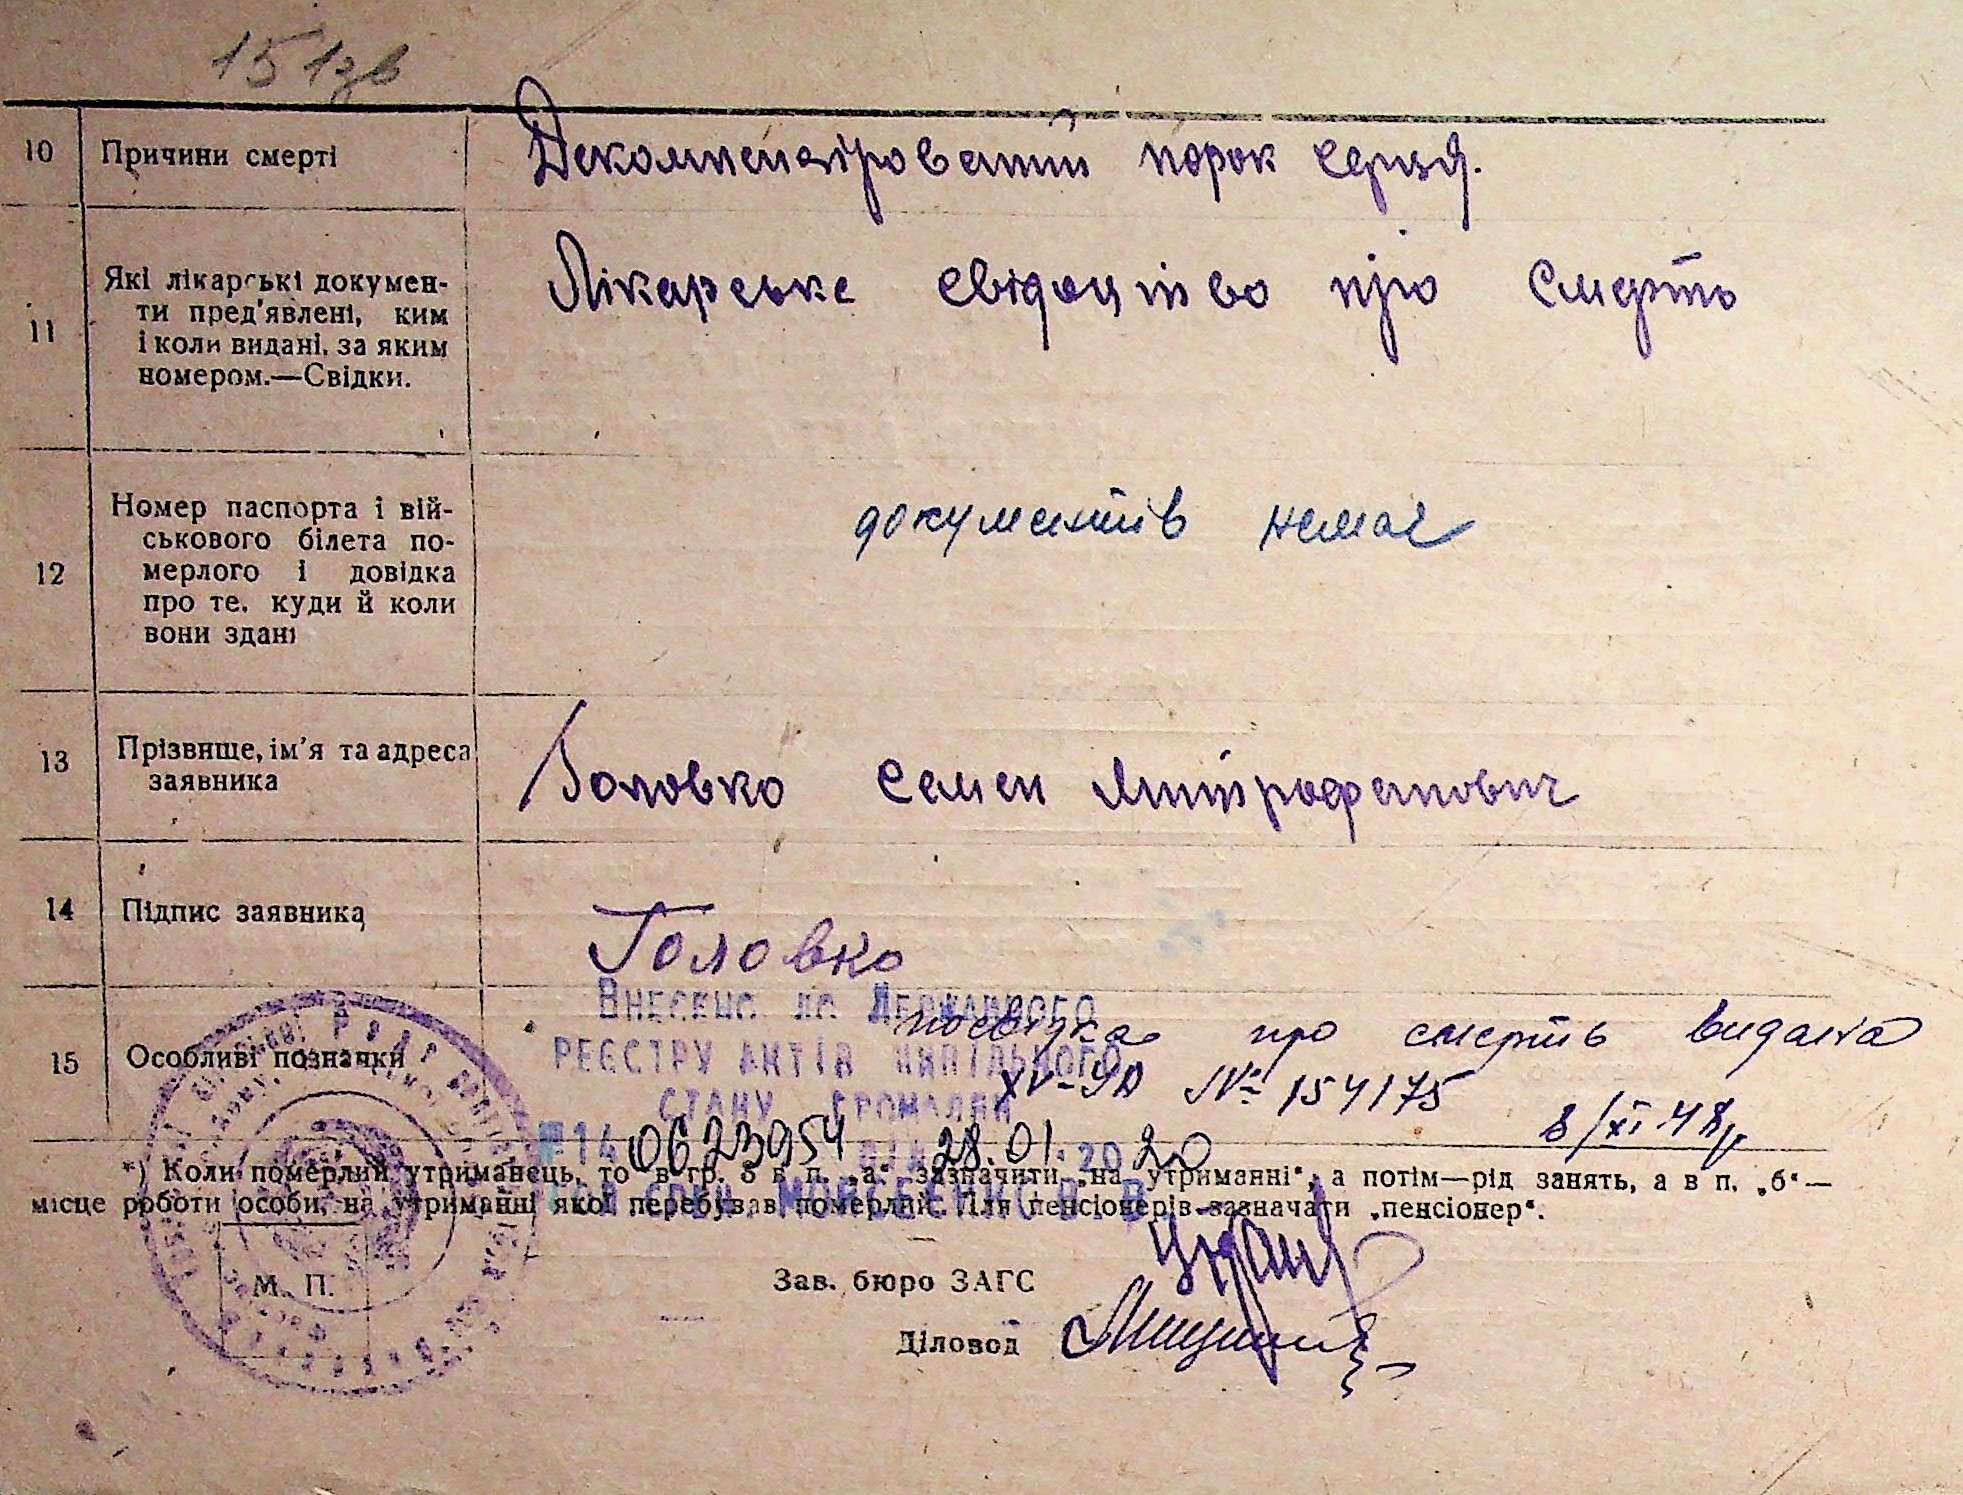 151зв
10 Причини смерті Декомпенсірований порок серця.
11 Які лікарські докумен-
ти пред'явлені, ким
і коли видані, за яким
номером.—Свідки.
Лікарське свідоцтво про смерть
12 Номер паспорта і вій-
ськового білета по-
мерлого і довідка
про те, куди й коли
вони здані
документів немає
13 Прізвище, ім'я та адреса
заявника
Головко Семен Митрофанович
14 Підпис заявника
Головко
15 Особливі позначки
Внесено до Державного
реєстру актів цивільного
стану громадян
№ 14 0623954 28.01.2020
посвідка про смерть видана
№ 154175
8/XI 48р
*) Коли померлий утриманець, то в гр. 3 в п. „а“ зазначити „на утриманні“, а потім—рід занять, а в п. „б“—
місце роботи особи, на утриманні якої перебував померлий. Для пенсіонерів зазначати „пенсіонер“.
М. П.
Зав. бюро ЗАГС
Діловод